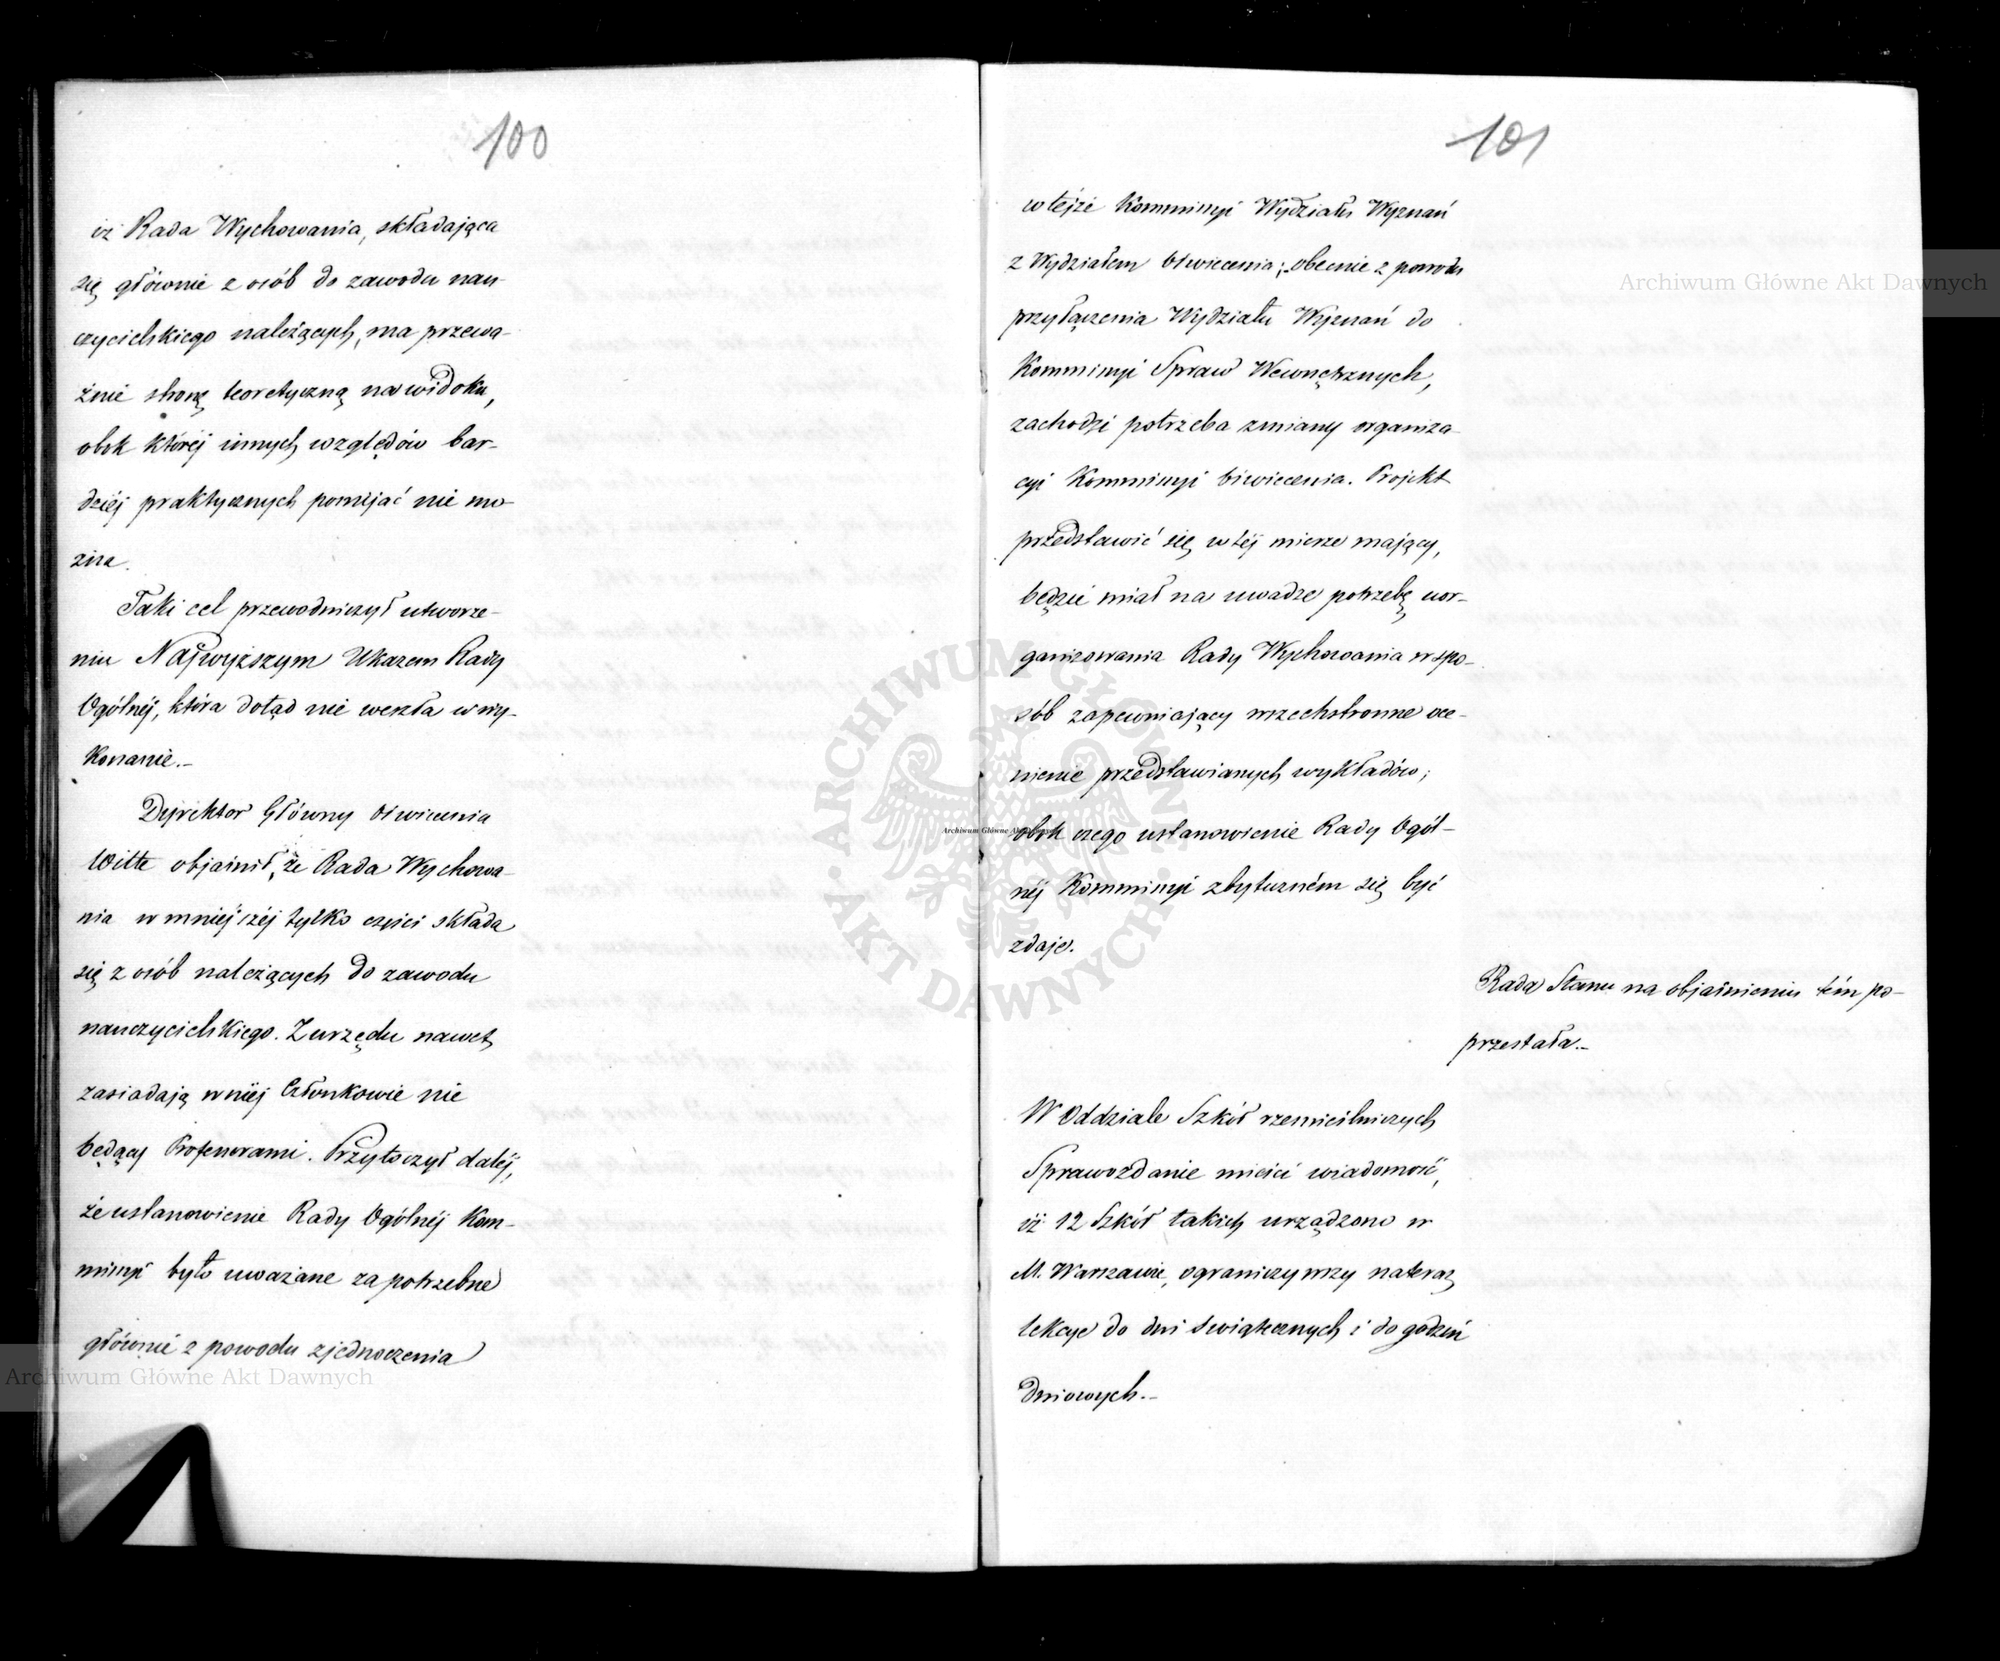 100
iż Rada Wychowania, składająca
się głównie z osób do zawodu nau-
czycielskiego należących, ma przewa-
żnie stronę teoretyczną na widoku,
obok której innych względów bar-
dziéj praktycznych pomijać nie mo-
żna.
Taki cel przewodniczył utworze-
niu Najwyższym Ukazem Rady
Ogólnéj, która dotąd nie weszła w wy-
konanie.-
Dyrektor Główny Oświecenia
Witte objaśnił, że Rada Wychowa-
nia w mniejszéj tylko części składa
się z osób należących do zawodu
nauczycielskiego. Z urzędu nawet
zasiadają w niéj Członkowie nie
będący Professorami. Przytoczył daléj,
że ustanowienie Rady Ogólnéj Kom-
missyi było uważane za potrzebne
głównie z powodu zjednoczenia
101
w tejże Kommissyi Wydziału Wyznań
z Wydziałem Oświecenia; obecnie z powodu
przyłączenia Wydziału Wyznań do
Kommissyi Spraw Wewnętrznych,
zachodzi potrzeba zmiany organiza-
cyi Kommissyi Oświecenia. Projekt
przedstawić się w téj mierze mający,
będzie miał na uwadze potrzebę uor-
ganizowania Rady Wychowania w spo-
sób zapewniający wszechstronne oce-
nienie przedstawianych wykładów;
obok czego ustanowienie Rady Ogól-
néj Kommissyi zbyteczném się być
zdaje.
Rada Stanu na objaśnieniu tém po-
przestała.-
W Oddziale Szkół rzemieślniczych
Sprawozdanie mieści wiadomość,
iż 12 Szkół takich urządzono w
M. Warszawie, ograniczywszy na teraz
lekcye do dni świątecznych i do godzin
dniowych.-
Archiwum Główne Akt Dawnych
Archiwum Główne Akt Dawnych
Archiwum Główne Akt Dawnych
ARCHIWUM GŁÓWNE · AKT DAWNYCH ·